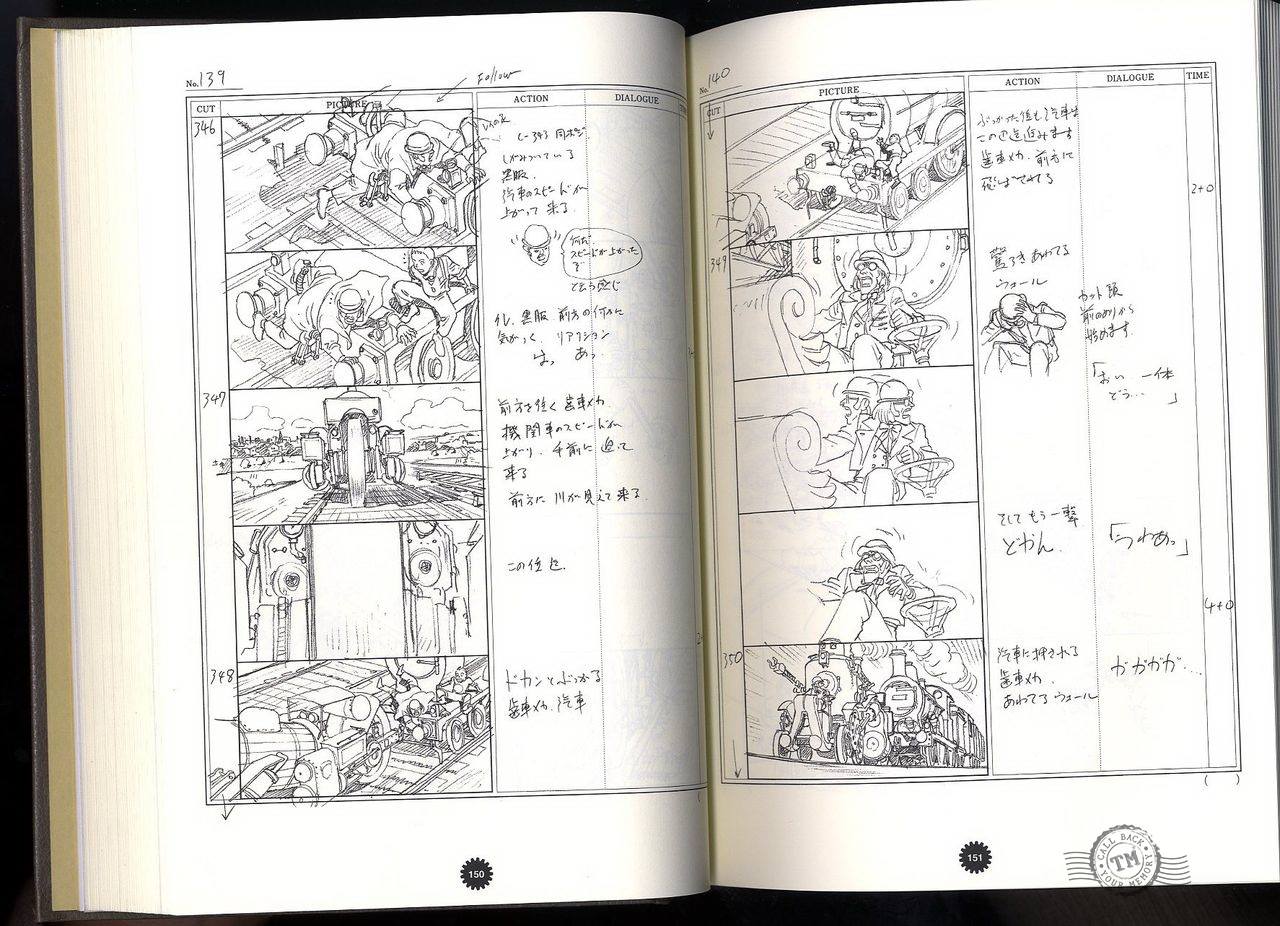 No. 139
Follow
CUT
PICTURE
ACTION
DIALOGUE
346
C-343 同ポジ
しがみついている
黒服
汽車のスピードが
上がって来る
何だ
スピードが上がった
ぞ
て云う感じ
黒服 前方の何かに
気がつく リアクション
はっ あっ
347
前方を往く 歯車メカ
機関車のスピードが
上がり、手前に迫って
来る
前方に 川が見えて来る
この位迄
348
ドカンとぶつかる
歯車メカ、汽車
150
No. 140
CUT
PICTURE
ACTION
DIALOGUE
TIME
ぶつかった後も汽車は
この位進みます
歯車メカ 前方に
飛ばされる
2+0
349
驚き あわてる
ウォール
カット頭
前のめりから
始めます
「おい 一体
どう… 」
そして もう一撃
どかん
「うわあっ」
4+0
350
汽車に押される
歯車メカ
あわてる ウォール
ガガガガ…
( )
151
CALL BACK
TM
YOUR MEMORY